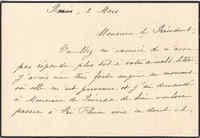 2 Mars
Monsieur le Président,
Veuillez m'excuser de n'avoir
pas répondu plus tôt à votre aimable lettre
j'avais une très forte angine au moment
où elle m'est parvenue, et j'ai demandé
à Monsieur de de bien vouloir
passer à